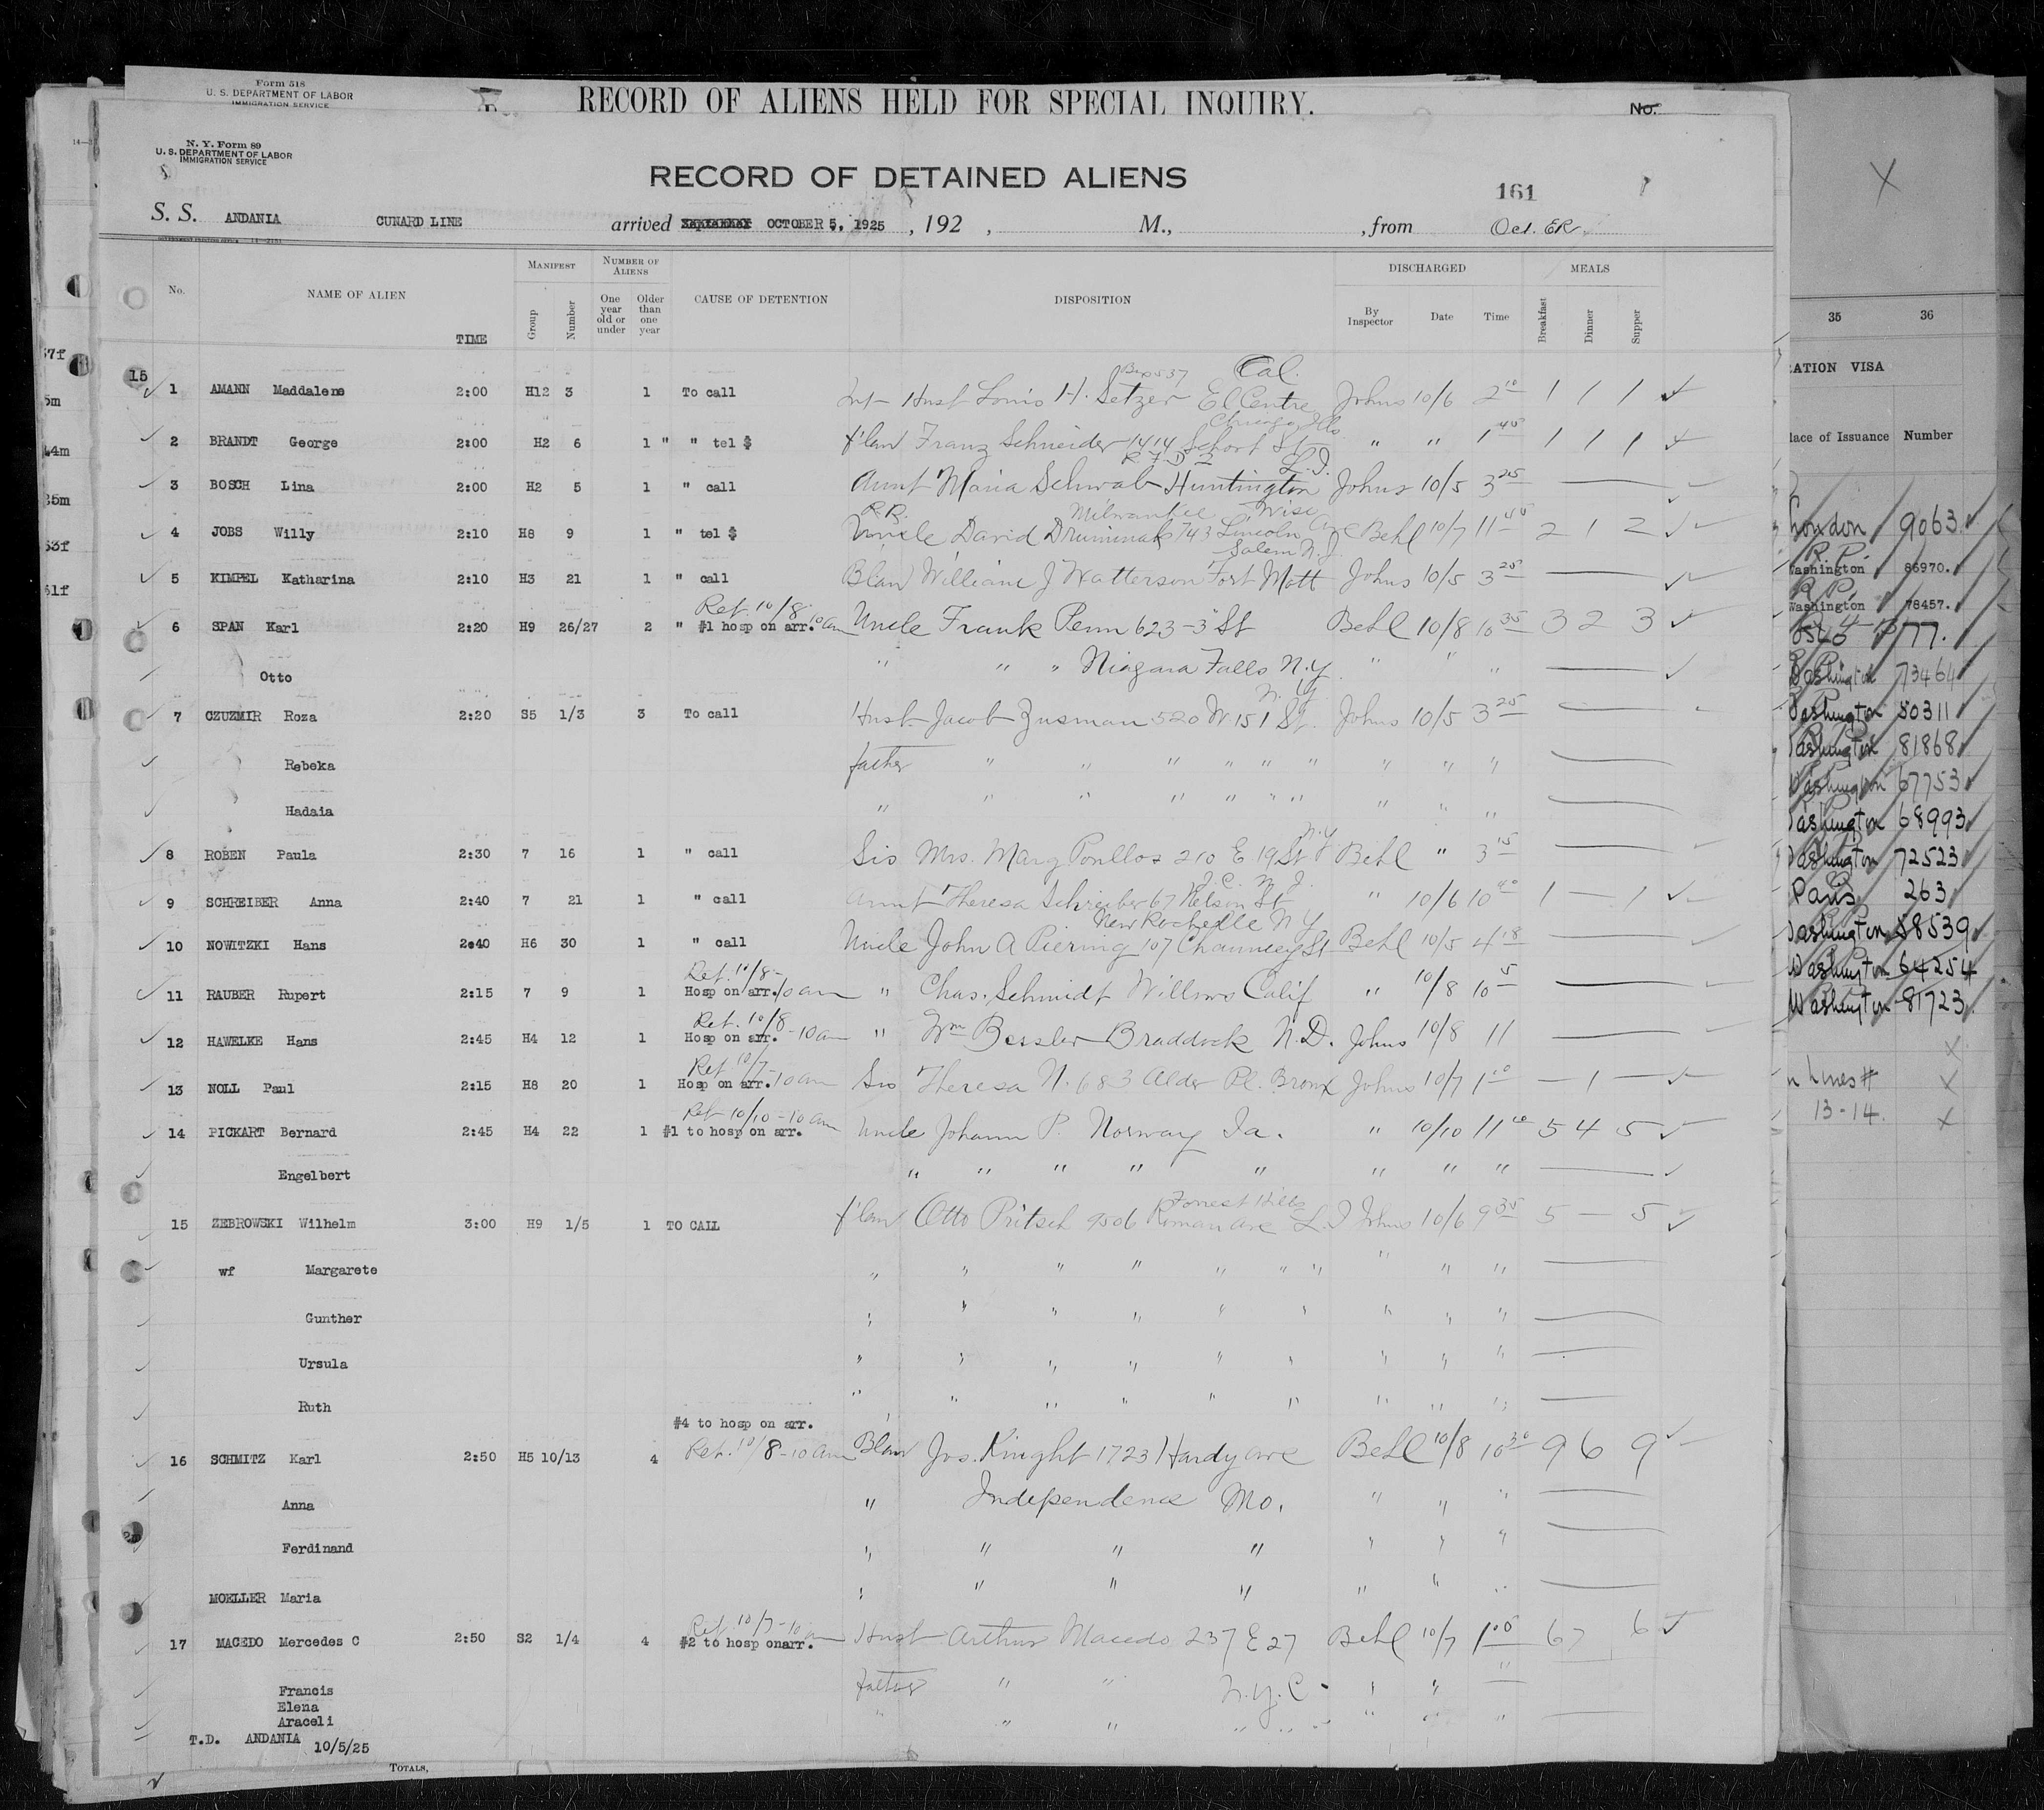 Form 518
U. S. DEPARTMENT OF LABOR
IMMIGRATION SERVICE
RECORD OF ALIENS HELD FOR SPECIAL INQUIRY.
No.
N. Y. Form 89
U. S. DEPARTMENT OF LABOR
IMMIGRATION SERVICE
RECORD OF DETAINED ALIENS
161
S. S. ANDANIA CUNARD LINE arrived OCTOBER 5, 1925 , 192 , M., , from Oct. ER
No. NAME OF ALIEN TIME MANIFEST Group Number NUMBER OF ALIENS One year old or under Older than one year CAUSE OF DETENTION DISPOSITION DISCHARGED By Inspector Date Time MEALS Breakfast Dinner Supper
15
Box 537 Cal.
1 AMANN Maddalene 2:00 H12 3 1 To call Int Husb Louis H. Setzer El Centro Johns 10/6 2 10 1 1 1
Chicago Ills
2 BRANDT George 2:00 H2 6 1 " " tel $ f'law Franz Schneider 1414 School St " " 1 40 1 1 1
R F D 2 L.I.
3 BOSCH Lina 2:00 H2 5 1 " call Aunt Maria Schwab Huntington Johns 10/5 3 25
R.R. Milwaukee Wisc
4 JOBS Willy 2:10 H8 9 1 " tel $ Uncle David 743 Lincoln Ave Behl 10/7 11 40 2 1 2
Salem N.J.
5 KIMPEL Katharina 2:10 H3 21 1 " call Blaw William J Watterson Fort Mott Johns 10/5 3 25
Ret. 10/8 10 am
6 SPAN Karl 2:20 H9 26/27 2 " #1 hosp on arr. Uncle Frank Penn 623-3 St Behl 10/8 10 35 3 2 3
Otto " " " Niagara Falls N.Y. " " "
N.Y.
7 CZUZMIR Roza 2:20 S5 1/3 3 To call Husb Jacob Zusman 520 W 151 St. Johns 10/5 3 25
Rebeka father " " " " " " " " "
Hadaia " " " " " " " " " "
N.Y.
8 ROBEN Paula 2:30 7 16 1 " call Sis Mrs. Mary 210 E 19 St Behl " 3 15
J.C. N.J.
9 SCHREIBER Anna 2:40 7 21 1 " call Aunt Theresa Schreiber 67 Nelson St " 10/6 10 40 1 — 1
New Rochelle N Y
10 NOWITZKI Hans 2:40 H6 30 1 " call Uncle John A Piering 107 Chauncey St Behl 10/5 4 18
Ret. 10/8-
11 RAUBER Rupert 2:15 7 9 1 Hosp on arr. 10 am " Chas. Schmidt Willows Calif " 10/8 10 5
Ret. 10/8
12 HAWELKE Hans 2:45 H4 12 1 Hosp on arr. -10am " Wm Bessler Braddock N.D. Johns 10/8 11
Ret 10/7-
13 NOLL Paul 2:15 H8 20 1 Hosp on arr. 10 am Sis Theresa N. 683 Alder Pl. Bronx Johns 10/7 1 10 — 1 —
Ret 10/10 - 10 am
14 PICKART Bernard 2:45 H4 22 1 #1 to hosp on arr. Uncle Johann P. Norway Ia. " 10/10 11 10 5 4 5
Engelbert " " " " " " " "
Forrest Hills
15 ZEBROWSKI Wilhelm 3:00 H9 1/5 1 TO CALL f'law Otto Pritsch 9506 Roman Ave L.I Johns 10/6 9 35 5 — 5
wf Margarete " " " " " " " " " "
Gunther " " " " " " " " "
Ursula " " " " " " " " "
Ruth " " " " " " " " "
#4 to hosp on arr.
16 SCHMITZ Karl 2:50 H5 10/13 4 Ret. 10/8-10 am Blaw Jos. Knight 1723 Hardy ave Behl 10/8 10 30 9 6 9
Anna " Independence Mo. " " "
Ferdinand " " " " " " "
MOELLER Maria " " " " " " "
Ret 10/7 - 10 am
17 MACEDO Mercedes C 2:50 S2 1/4 4 #2 to hosp onarr. Husb Arthur Macedo 237 E 27 Behl 10/7 1 00 6 7 6
Francis father " " N.Y.C. " " "
Elena
Araceli " " " " " " " " "
T.D. ANDANIA 10/5/25
TOTALS,
35 36
ATION VISA
lace of Issuance Number
London 9063
R.P.
Washington 86970.
R.P.
Washington 78457.
Washington 73464
Washington 50311
Washington 81868
Washington 67753
Washington 68993
Washington 72523
Paris 263
Washington 58539
Washington 64254
Washington 81723
n Lines #
13-14.